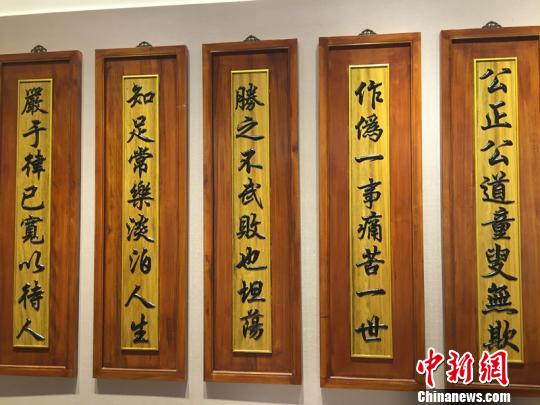 公正公道童叟無欺
作僞一事痛苦一世
勝之不武敗也坦蕩
知足常樂淡泊人生
嚴于律己寬以待人
中新网
Chinanews.com